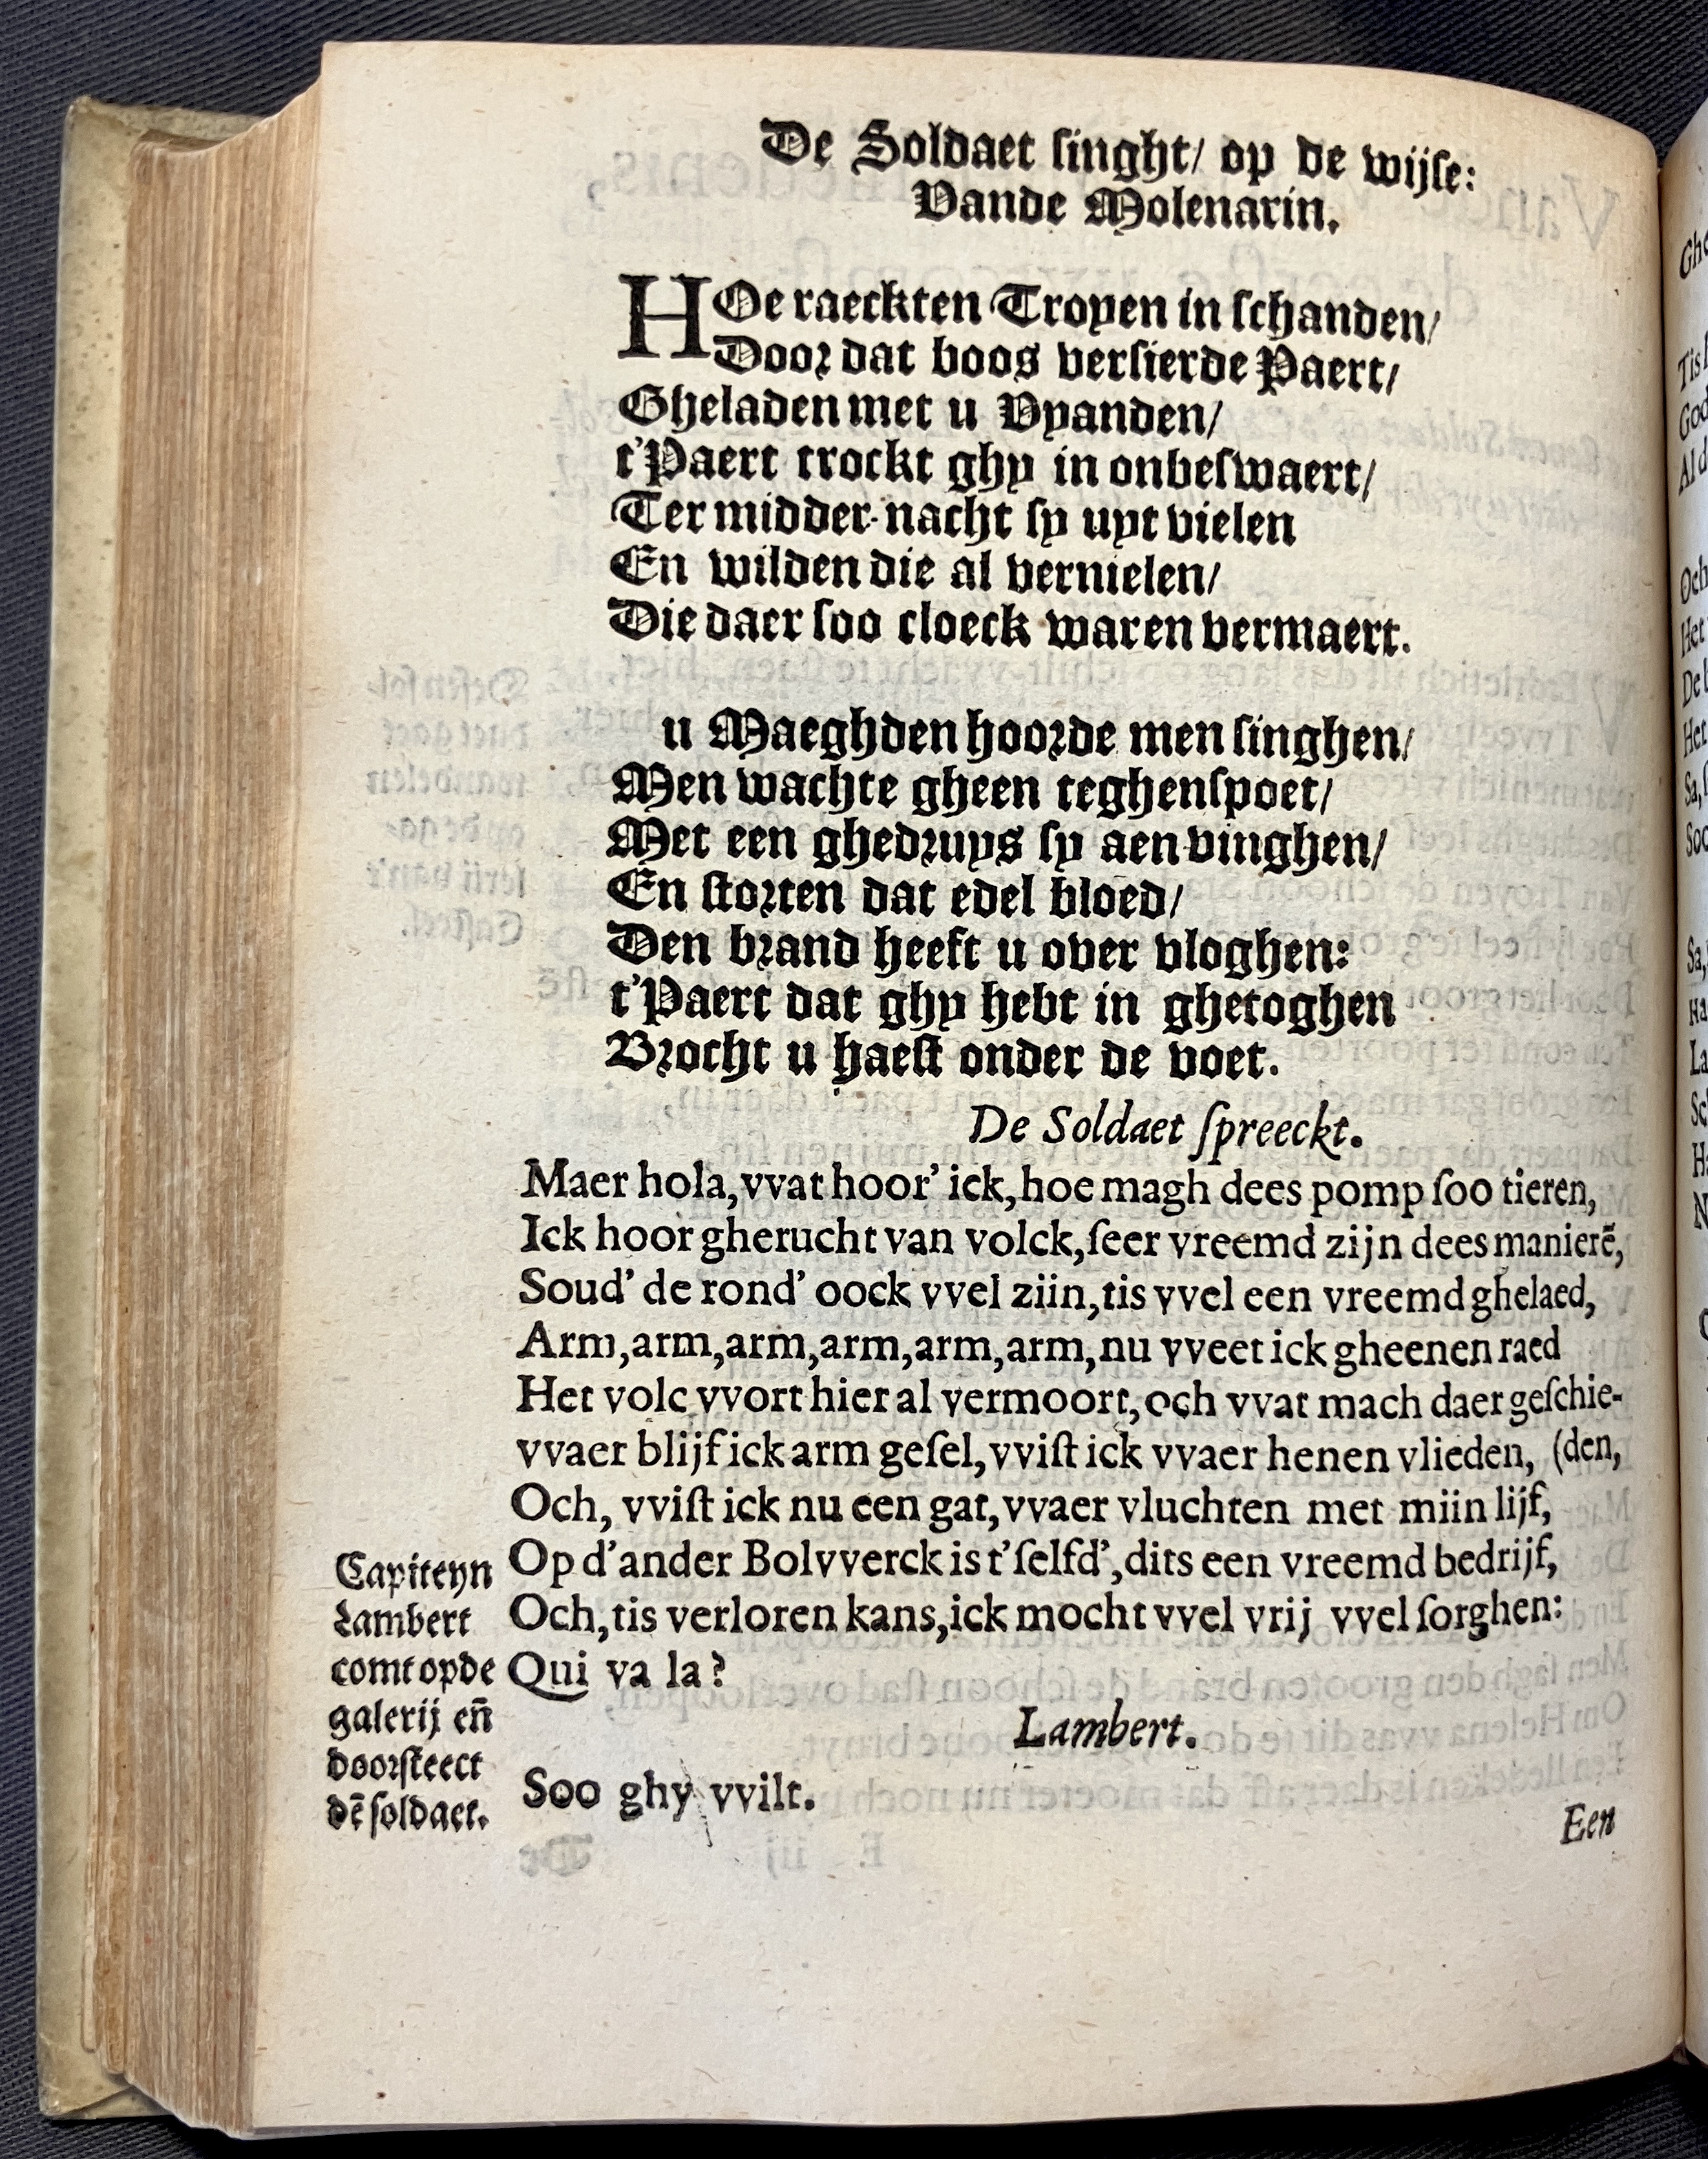 De Soldaet ſinght/ op de wijſe:
Vande Molenarin.
HOe raeckten Troyen in ſchanden/
Door dat boos verſierde Paert/
Gheladen met u Vyanden/
t'Paert trockt ghy in onbeſwaert/
Ter midder-nacht ſy uyt vielen
En wilden die al vernielen/
Die daer ſoo cloeck waren vermaert.
u Maeghden hoorde men ſinghen/
Men wachte gheen teghenſpoet/
Met een ghedruys ſy aen vinghen/
En ſtorten dat edel bloed/
Den brand heeft u over vloghen:
t'Paert dat ghy hebt in ghetoghen
Brocht u haeſt onder de voet.
De Soldaet ſpreeckt.
Maer hola, vvat hoor' ick, hoe magh dees pomp ſoo tieren,
Ick hoor gherucht van volck, ſeer vreemd zijn dees manierẽ,
Soud' de rond' oock vvel ziin, tis vvel een vreemd ghelaed,
Arm, arm, arm, arm, arm, arm, nu vveet ick gheenen raed
Het volc vvort hier al vermoort, och vvat mach daer geſchie-
vvaer blijf ick arm geſel, vviſt ick vvaer henen vlieden, (den,
Och, vviſt ick nu een gat, vvaer vluchten met miin lijf,
Op d'ander Bolvverck is t'ſelfd', dits een vreemd bedrijf,
Och, tis verloren kans, ick mocht vvel vrij vvel ſorghen:
Qui va la?
Capiteyn
Lambert
comt opde
galerij en̄
doorſteect
dẽ ſoldaet.
Lambert.
Soo ghy vvilt.
Een